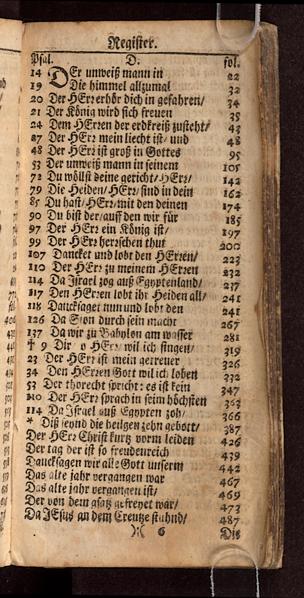 Register.
Psal. D. fol.
14 DEr unweiß mann in 22
19 Die himmel allzumal 32
20 Der HErr erhör dich in gefahren/ 34
21 Der König wird sich freuen 35
24 Dem HErren der erdkreiß zusteht/ 43
27 Der HErr mein liecht ist/ und 48
48 Der HErr ist groß in Gottes 95
53 Der unweiß mann in seinem 105
72 Du wöllst deine gericht/ HErr/ 142
79 Die Heiden/ HErr/ sind in dein 162
85 Du hast/ HErr/ mit den deinen 174
90 Du bist der/ auff den wir für 185
97 Der HErr ein König ist/ 197
99 Der HErr herrschen thut 200
107 Dancket und lobt den HErren/ 223
110 Der HErr zu meinem HErren 232
114 Da Israel zog auß Egyptenland/ 237
117 Den HErren lobt ihr Heiden all/ 241
118 Dancksaget nun und lobt den 241
126 Da Sion durch sein macht 267
137 Da wir zu Babylon am wasser 281
† 9 Dir o HErr wil ich singen/ 319
23 Der HErr ist mein getreuer 326
34 Den HErren Gott wil ich loben 332
53 Der thorecht spricht: es ist kein 347
110 Der HErr sprach in seim höchsten 363
114 Da Israel auß Egypten zoh/ 366
* Diß seynd die heilgen zehn gebott/ 387
Der HErr Christ kurtz vorm leiden 426
Der tag der ist so freudenreich 439
Dancksagen wir alle Gott unserm 442
Das alte jahr vergangen war 467
Das alte jahr vergangen ist/ 469
Der von dem gsatz gefreyet war/ 473
Da JEsus an dem Creutze stuhnd/ 487
):( 6 Die